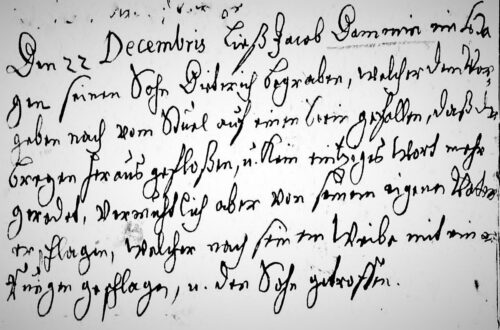 Den 22 Decembris ließ Jacob Dammin in
gen seinen Sohn Dieterich begraben, welcher dem Vor-
geben nach vom Stuel auf einen Stein gefallen, daß der
bregen heraus gefloßen, u. kein eintziges Wort mehr
geredet, vermuhtlich aber von seinem eigenen Vater
erschlagen, welcher nach seinem Weibe mit ein
gen geschlagen, u. den Sohn getroffen.